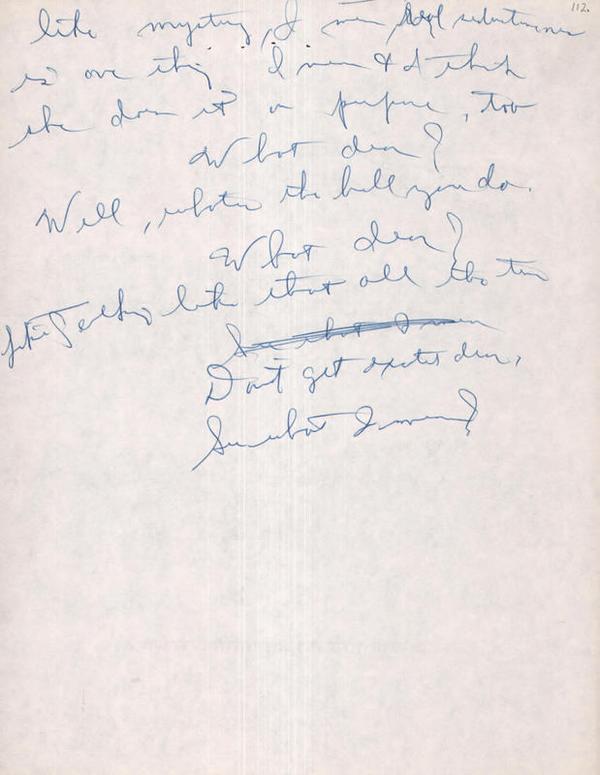 112.
like mystery, I mean
is one thing I mean & I think
she does it on purpose, too
What dear?
Well, whatever the hell you do.
What dear?
Talking like that all the time
See what I mean
Don't get excited dear,
See what I mean?